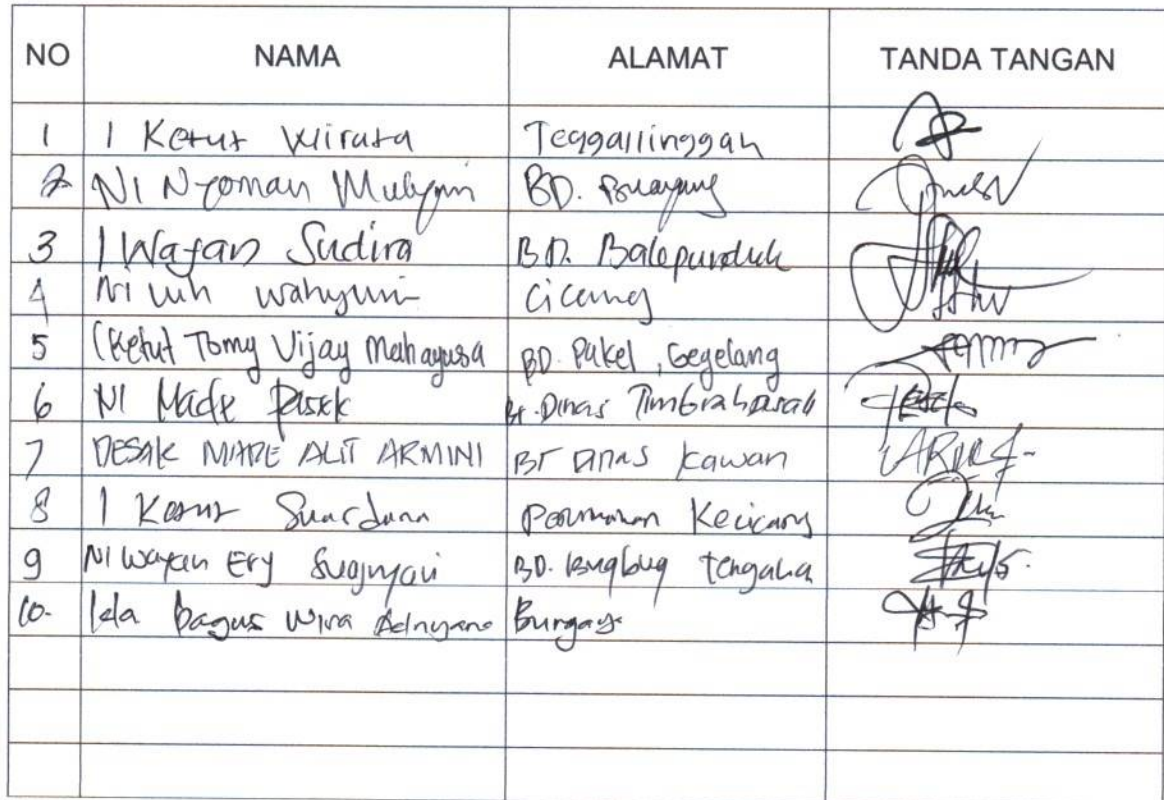 NO NAMA ALAMAT TANDA TANGAN
1 I Ketut Wirata Teggallinggah
2 NI Nyoman Mulyani BD. Buayang
3 I Wayan Sudira BD. Balepunduk
4 Ni Luh Wahyuni Cicang
5 I Ketut Tomy Vijay Mahayusa BD. Pakel, Gegelang
6 NI Made Pasek Br. Dinas Timbrah
7 DESAK MADE ALIT ARMINI BR DINAS Kawan
8 I Ketut Suardana Perumahan Kecicang
9 NI Wayan Ery BD. Bugbug Tengaha
10. Ida bagus Wira Adnyana Bungaya